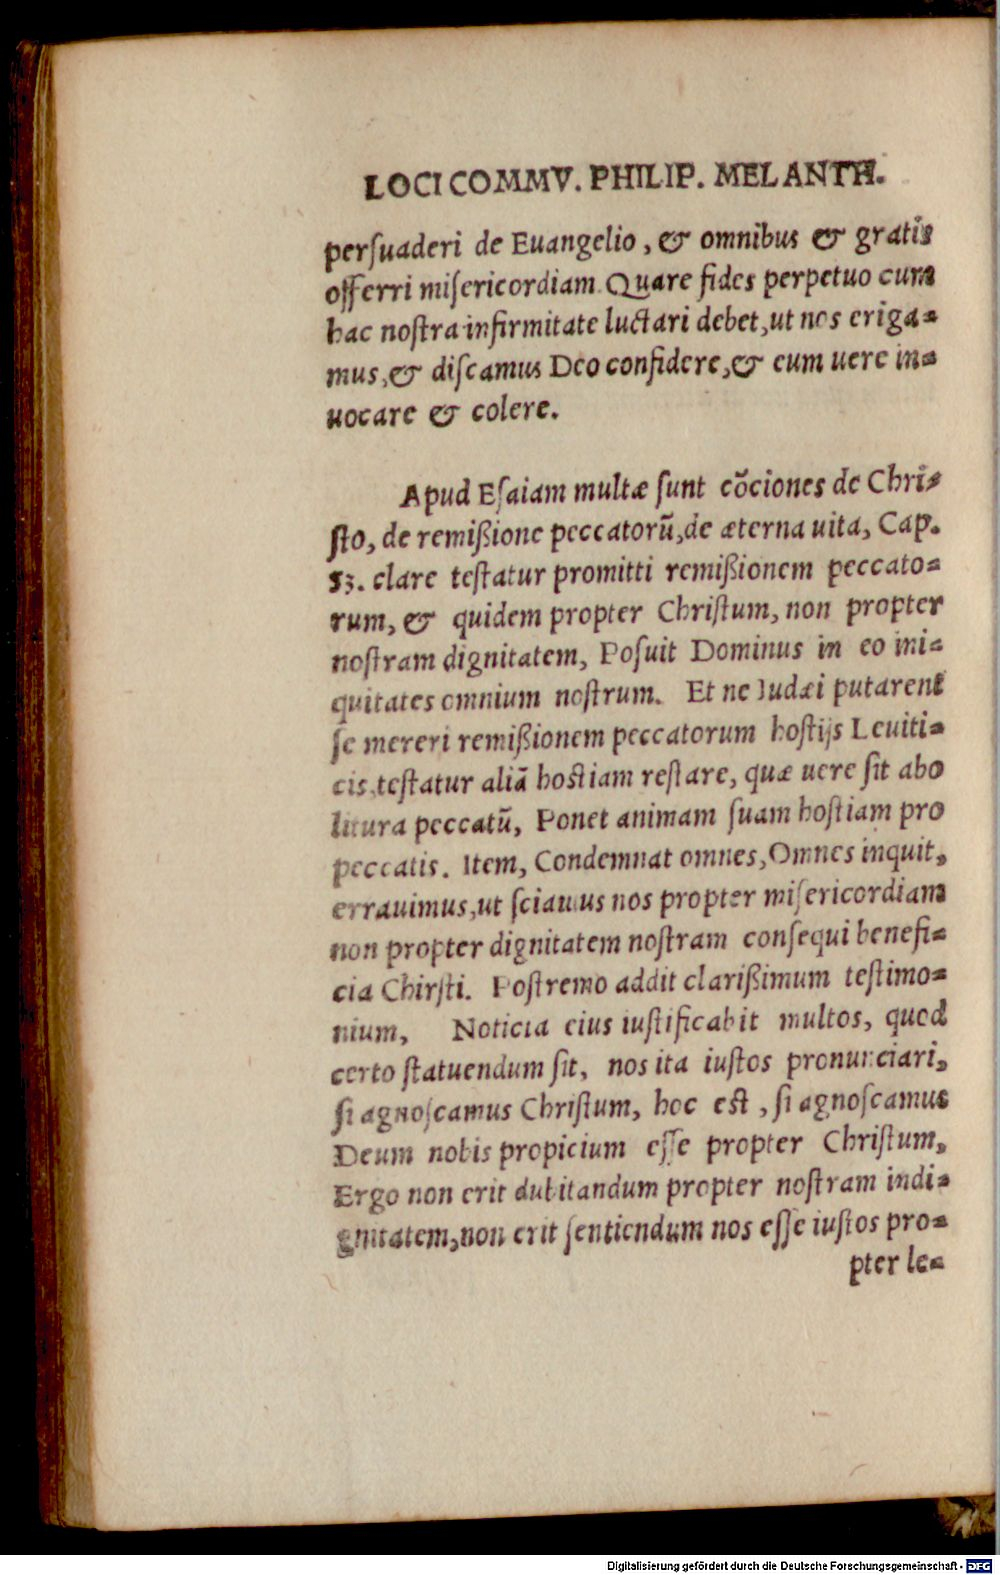 LOCI COMMV. PHILIP. MELANTH.
persuaderi de Euangelio, & omnibus & gratis
offerri misericordiam. Quare fides perpetuo cum
hac nostra infirmitate luctari debet, ut nos eriga-
mus, & discamus Deo confidere, & eum uere in-
uocare & colere.
Apud Esaiam multæ sunt cōciones de Chri-
sto, de remißione peccatorū, de æterna uita, Cap.
53. clare testatur promitti remißionem peccato-
rum, & quidem propter Christum, non propter
nostram dignitatem, Posuit Dominus in eo ini-
quitates omnium nostrum. Et ne Iudæi putarent
se mereri remißionem peccatorum hostijs Leuiti-
cis, testatur aliā hostiam restare, quæ uere sit abo
litura peccatū, Ponet animam suam hostiam pro
peccatis. Item, Condemnat omnes, Omnes inquit,
errauimus, ut sciamus nos propter misericordiam
non propter dignitatem nostram consequi benefi-
cia Chirsti. Postremo addit clarißimum testimo-
nium, Noticia eius iustificabit multos, quod
certo statuendum sit, nos ita iustos pronunciari,
si agnoscamus Christum, hoc est, si agnoscamus
Deum nobis propicium esse propter Christum,
Ergo non erit dubitandum propter nostram indi-
gnitatem, non erit sentiendum nos esse iustos pro-
pter le-
Digitalisierung gefördert durch die Deutsche Forschungsgemeinschaft - DFG